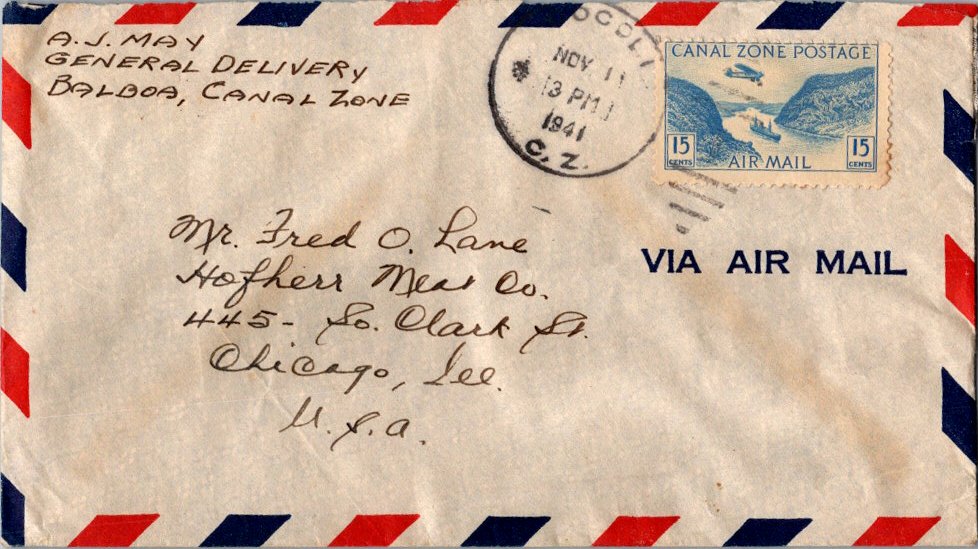 A. J. MAY
GENERAL DELIVERY
BALBOA, CANAL ZONE
NOV. 11
3 PM
1941
C. Z.
CANAL ZONE POSTAGE
15 CENTS
15 CENTS
AIR MAIL
VIA AIR MAIL
Mr. Fred O. Lane
Hofherr Meat Co.
445- So. Clark St.
Chicago, Ill.
U.S.A.